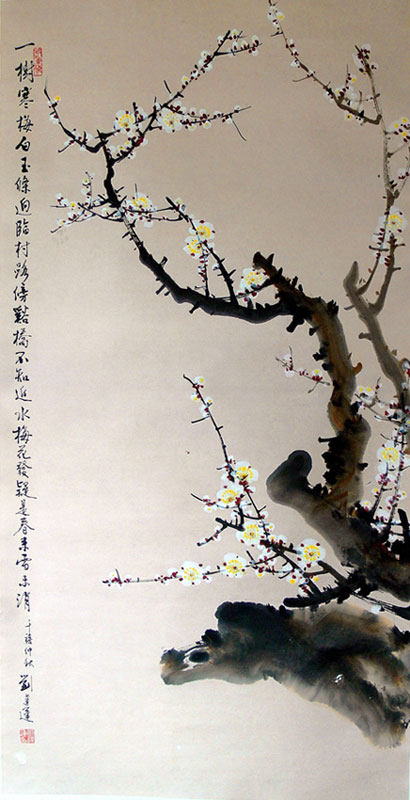 一樹寒梅白玉條迥臨村路傍谿橋不知近水梅花發疑是春来雪未消
千禧仲秋 劉